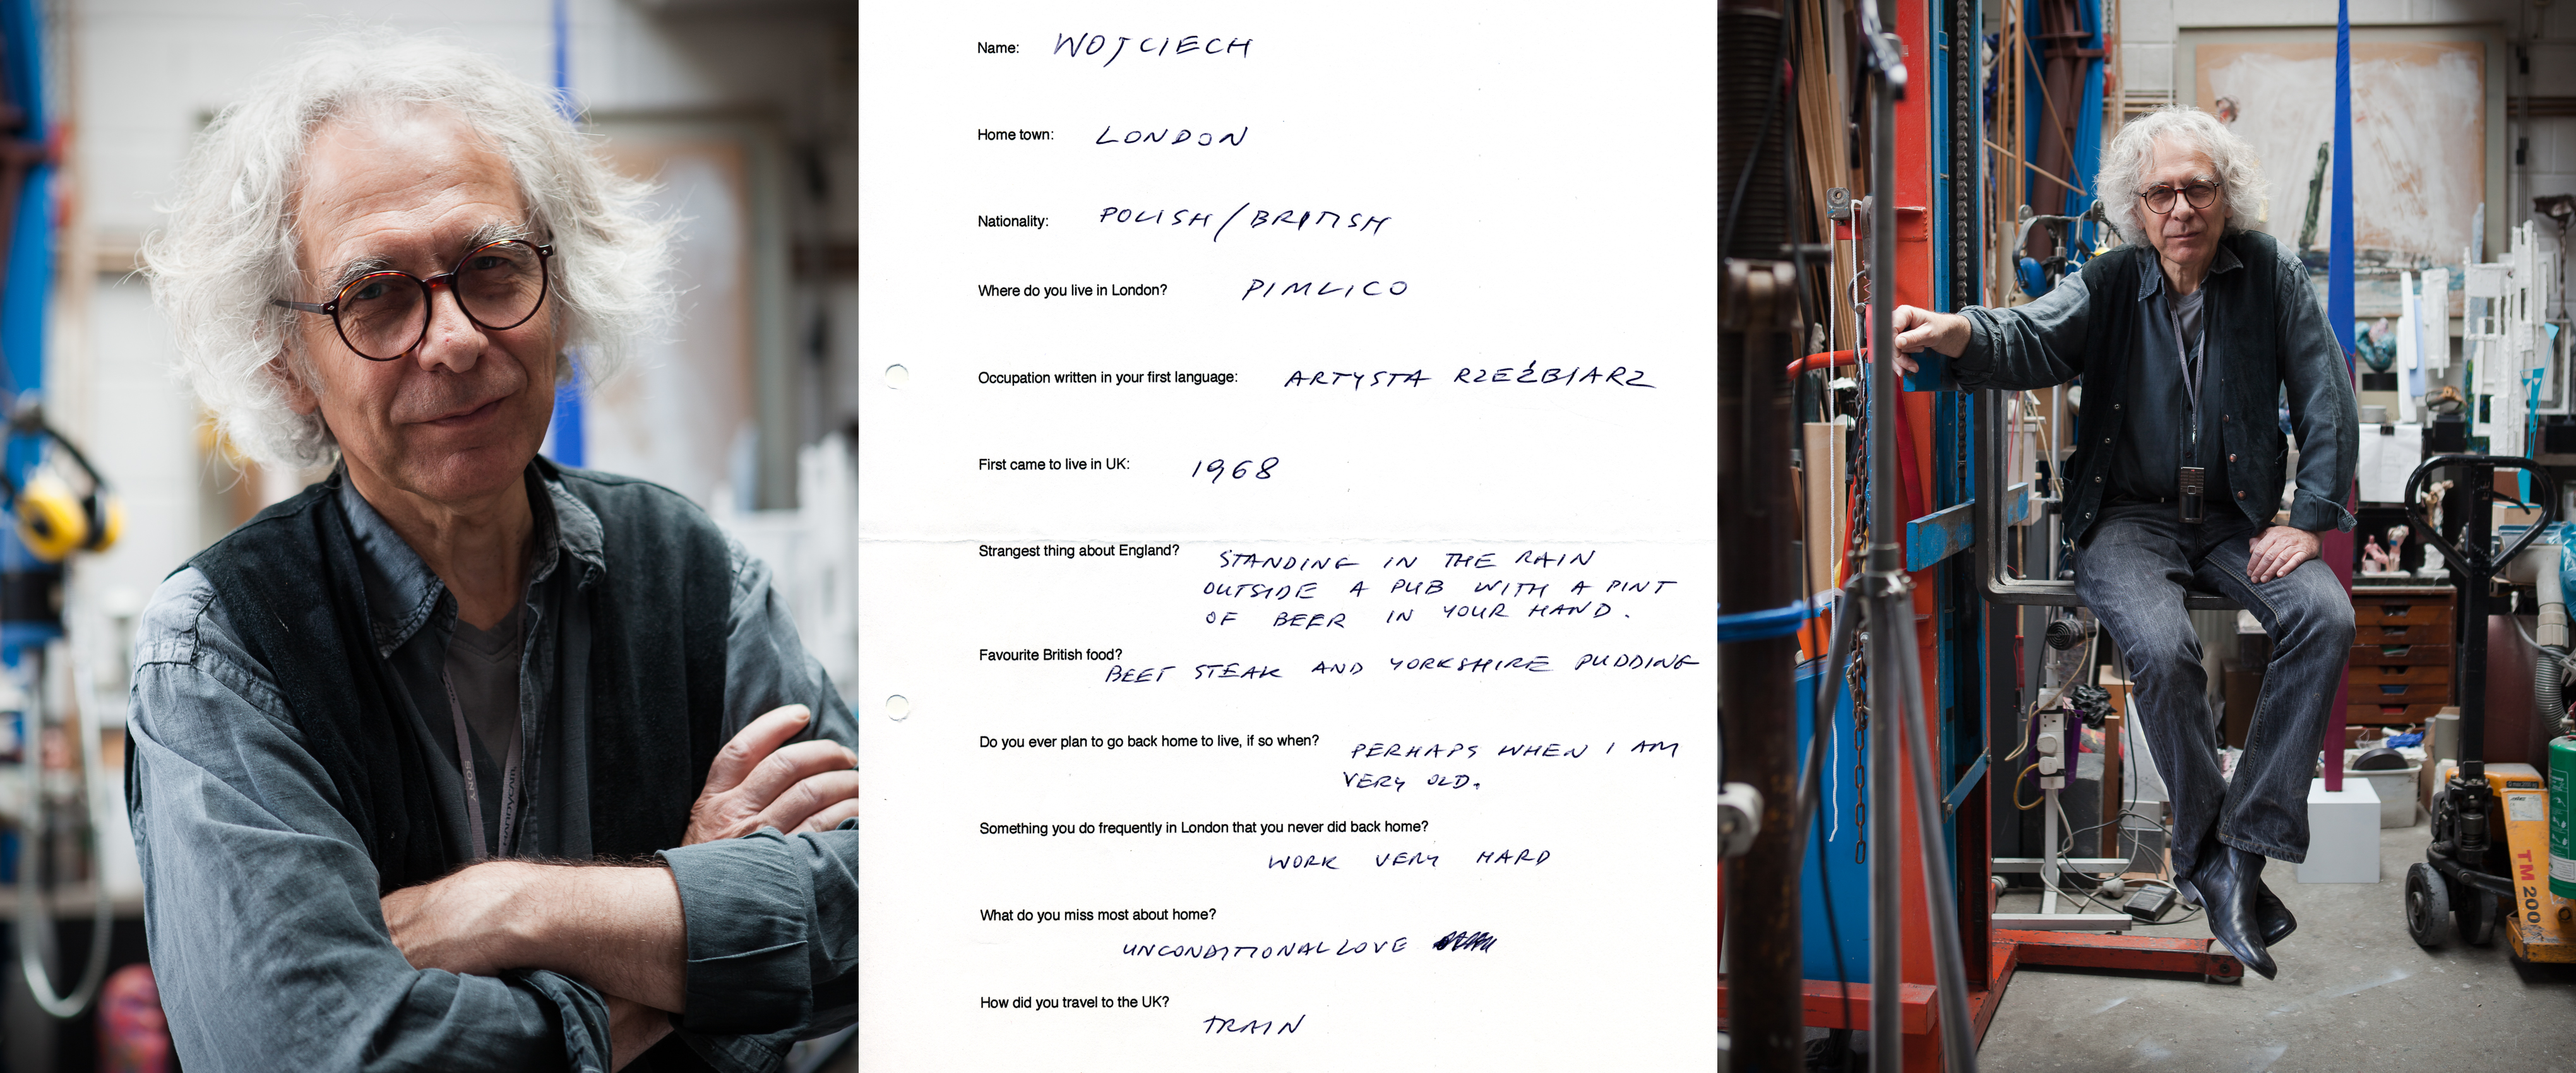 SONY
SONY
Name: WOJCIECH
Home town: LONDON
Nationality: POLISH/BRITISH
Where do you live in London? PIMLICO
Occupation written in your first language: ARTYSTA RZEŹBIARZ
First came to live in UK: 1968
Strangest thing about England? STANDING IN THE RAIN
OUTSIDE A PUB WITH A PINT
OF BEER IN YOUR HAND.
Favourite British food?
BEEF STEAK AND YORKSHIRE PUDDING
Do you ever plan to go back home to live, if so when? PERHAPS WHEN I AM
VERY OLD.
Something you do frequently in London that you never did back home?
WORK VERY HARD
What do you miss most about home?
UNCONDITIONAL LOVE
How did you travel to the UK?
TRAIN
TM 2000